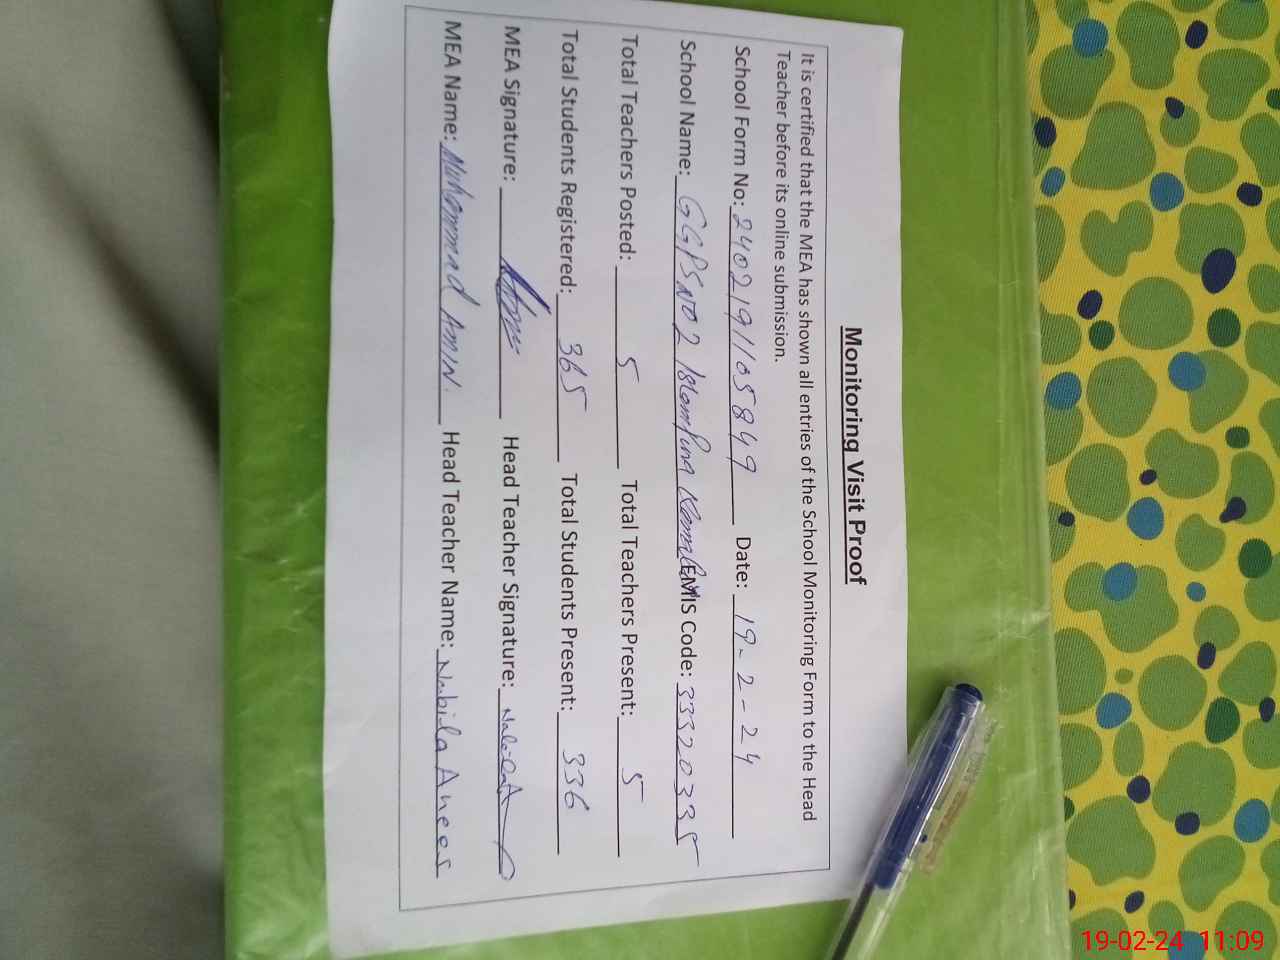 Monitoring Visit Proof
It is certified that the MEA has shown all entries of the School Monitoring Form to the Head
Teacher before its online submission.
School Form No: 24021911058 49 Date: 19-2-24
School Name: GGPS NO2 Islam Pura EMIS Code: 33320335
Total Teachers Posted: 5 Total Teachers Present: 5
Total Students Registered: 365 Total Students Present: 336
MEA Signature: Head Teacher Signature:
MEA Name: Muhammad AMIN. Head Teacher Name: Nabila Anees
19-02-24 11:09